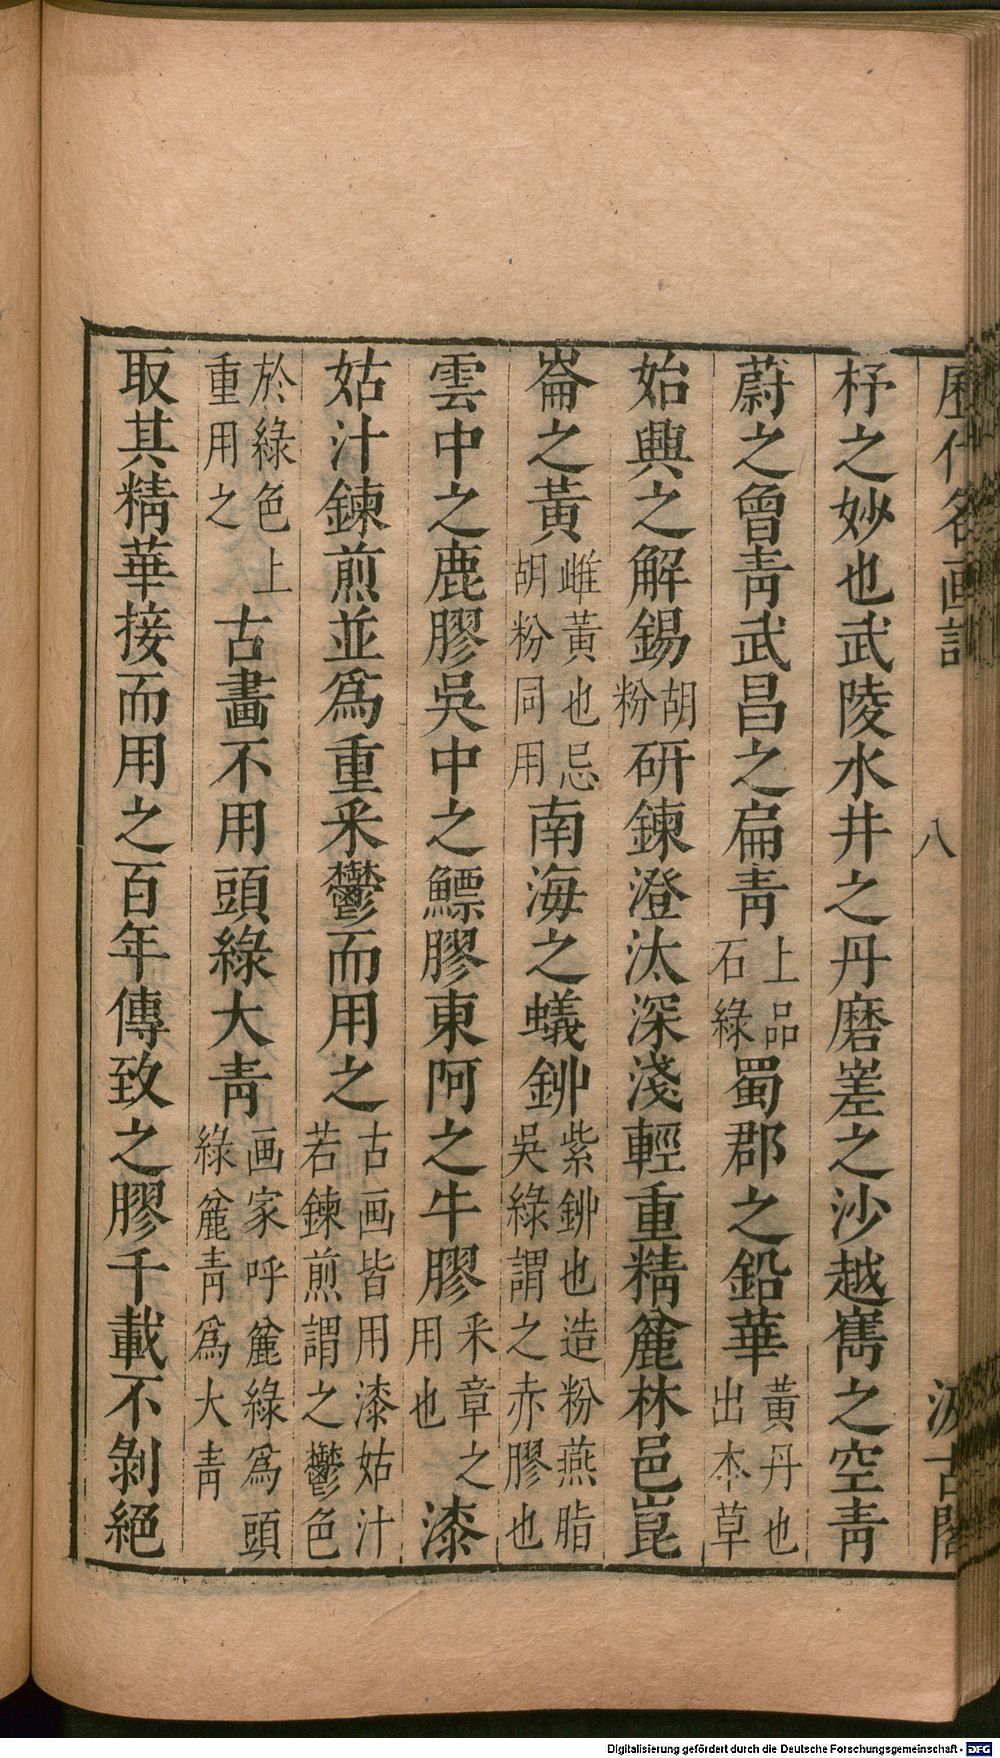 歷代名画記 八 汲古閣
杼之妙也武陵水井之丹磨嵯之沙越嶲之空青
蔚之曾青武昌之扁青上品石綠蜀郡之鉛華黃丹也出本草
始興之解錫胡粉研鍊澄汰深淺輕重精麄林邑崑
崙之黃雌黃也忌胡粉同用南海之蟻鉚紫鉚也造粉燕脂吳綠謂之赤膠也
雲中之鹿膠吳中之鰾膠東阿之牛膠釆章之用也漆
姑汁鍊煎並爲重釆鬱而用之古画皆用漆姑汁若鍊煎謂之鬱色
於綠色上重用之古畫不用頭綠大青画家呼麄綠爲頭綠麄青爲大青
取其精華接而用之百年傳致之膠千載不剝絕
Digitalisierung gefördert durch die Deutsche Forschungsgemeinschaft - DFG